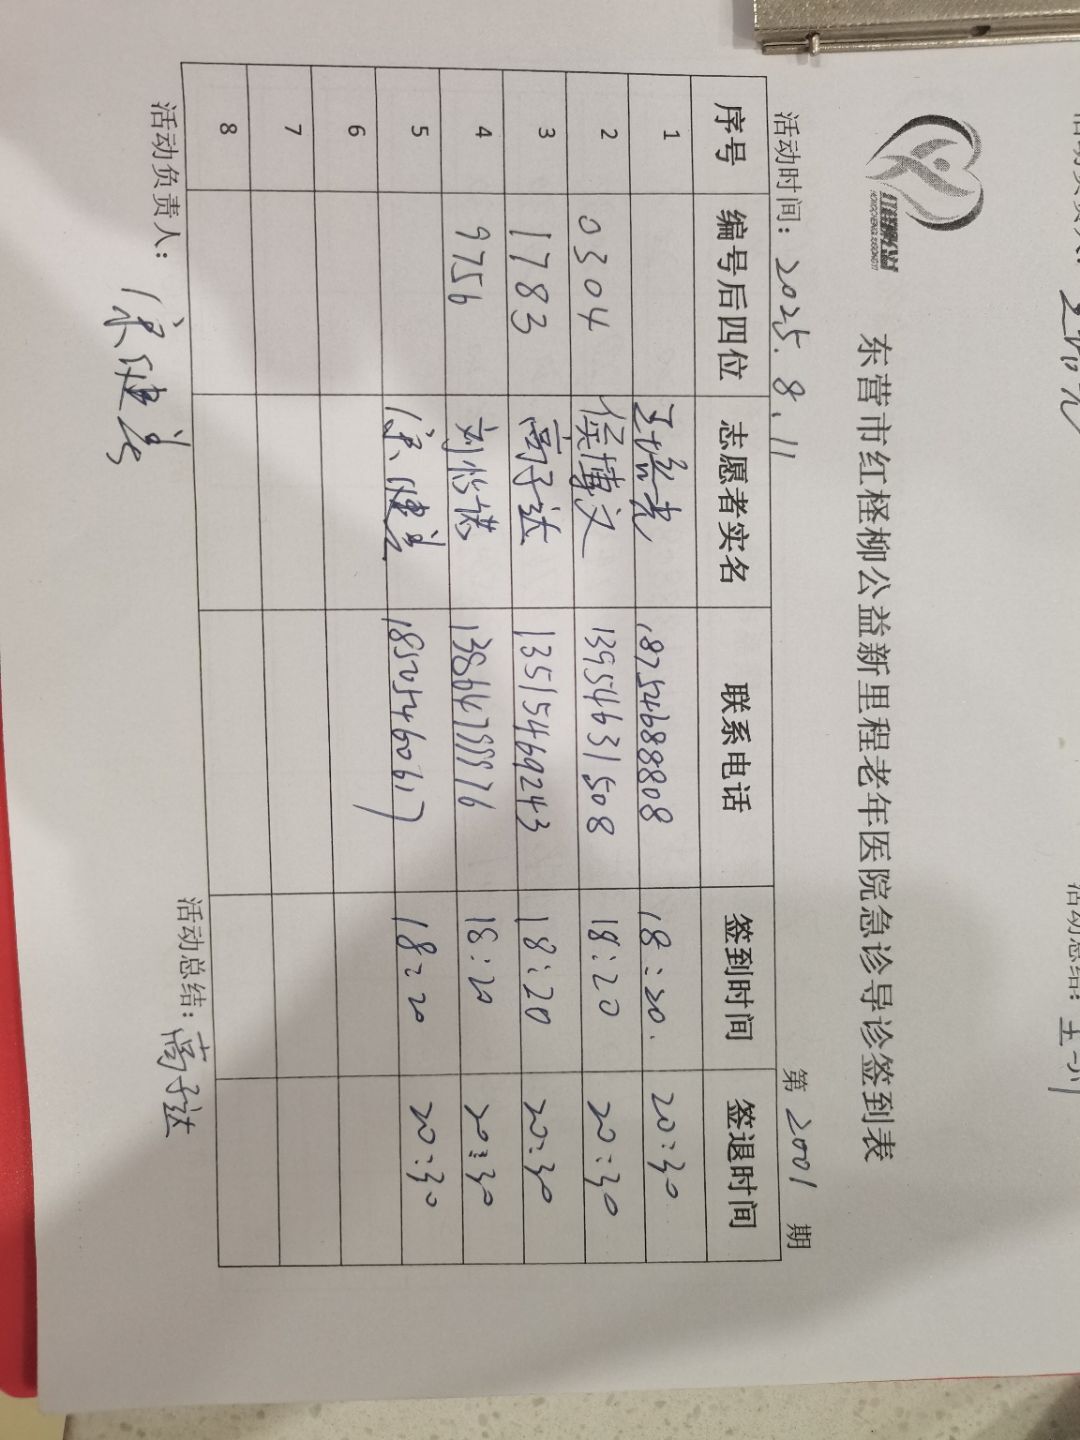 红柽柳公益
东营市红柽柳公益新里程老年医院急诊导诊签到表
活动时间：2025.8.11 第 2001 期
序号 编号后四位 志愿者实名 联系电话 签到时间 签退时间
1 18754688808 18:20. 20:30
2 0304 侯博文 13954631508 18:20 20:30
3 1783 高子达 13515469243 18:20 20:30
4 9756 刘怡诺 18:20 20:30
5 18505460617 18:20 20:30
6
7
8
活动负责人： 活动总结：高子达
活动总结：